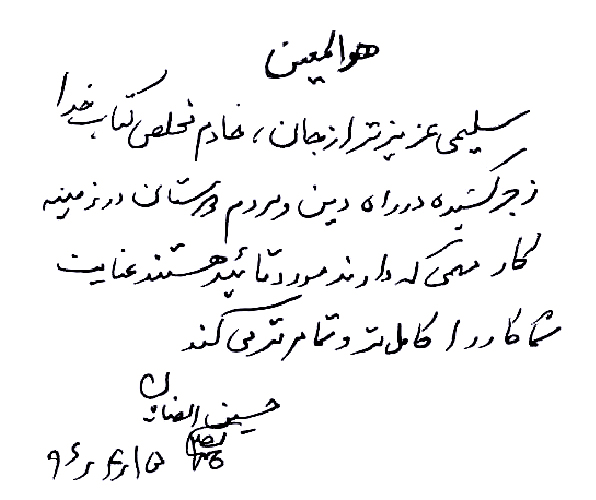 هو المعین
سلیمی عزیزتر از جان، خادم مخلص کتاب خدا
زجر کشیده در راه دین و مردم لرستان در زمینه
کار مهمی که دارند مورد تائید هستند عنایت
شما کار را کاملتر و تمامتر می کند
حسین انصاریان
۹۶٫۴٫۱۵